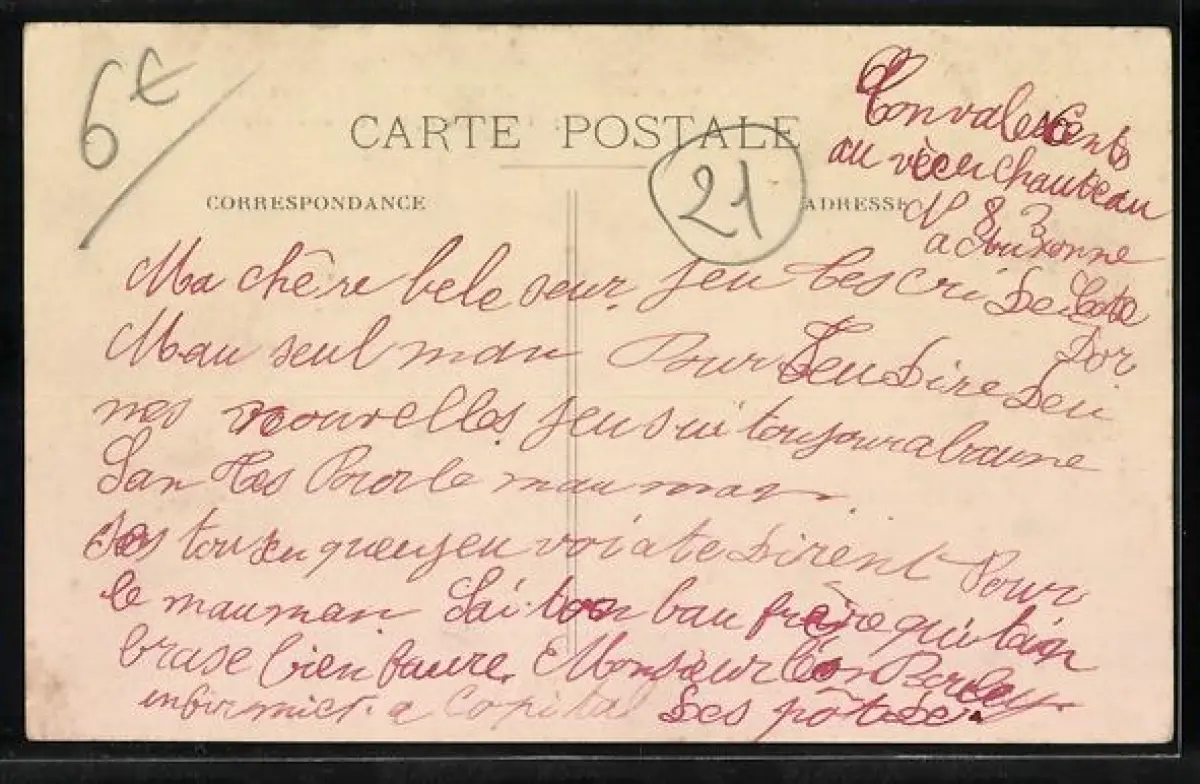 6€
CARTE POSTALE
21
CORRESPONDANCE
ADRESSE
Convalescents
au vieux chauteau
N 83
a Auxonne
Cote
Dor
Ma chêre bele seur jeu tescri Deu
Mau seul mau Pour Teu Dire Deu
mes nouvelles, jeu sui toujour a
San tes Pour le mau man.
Ses tous en queu jeu voi ate Dirent Pour
le mauman Sai ton bau frère qui tain
brase bien faure. Monsieur Léon
infirmier. a Copital Des